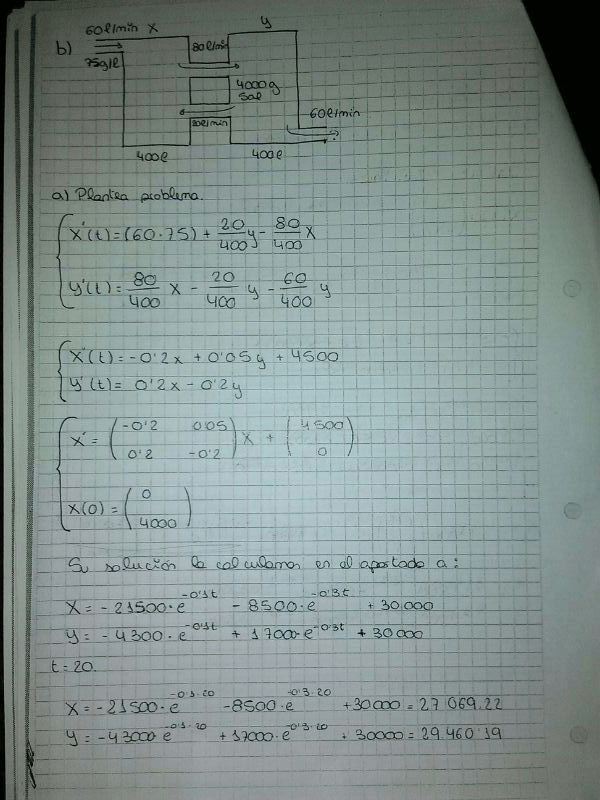 60l/min X
y
b)
75g/l
80l/min
4000g
sal
20l/min
60l/min
400l 400l
a) Plantea problema.
X'(t)=(60·75) + 20/400 y - 80/400 X
y'(t)= 80/400 X - 20/400 y - 60/400 y
X'(t)=-0'2x + 0'05y + 4500
y'(t)= 0'2x - 0'2y
X' = ( -0'2 0'05 ) X + ( 4500 )
( 0'2 -0'2 ) ( 0 )
X(0) = ( 0 )
( 4000 )
Su solución la calculamos en el apartado a:
X = - 21500·e^-0'1t - 8500·e^-0'3t + 30.000
y = - 4300·e^-0'1t + 17000·e^-0'3t + 30000
t=20.
X=-21500·e^-0'1·20 -8500·e^-0'3·20 +30000 = 27 069.22
y=-43000·e^-0'1·20 +17000·e^-0'3·20 + 30000 = 29.460'19